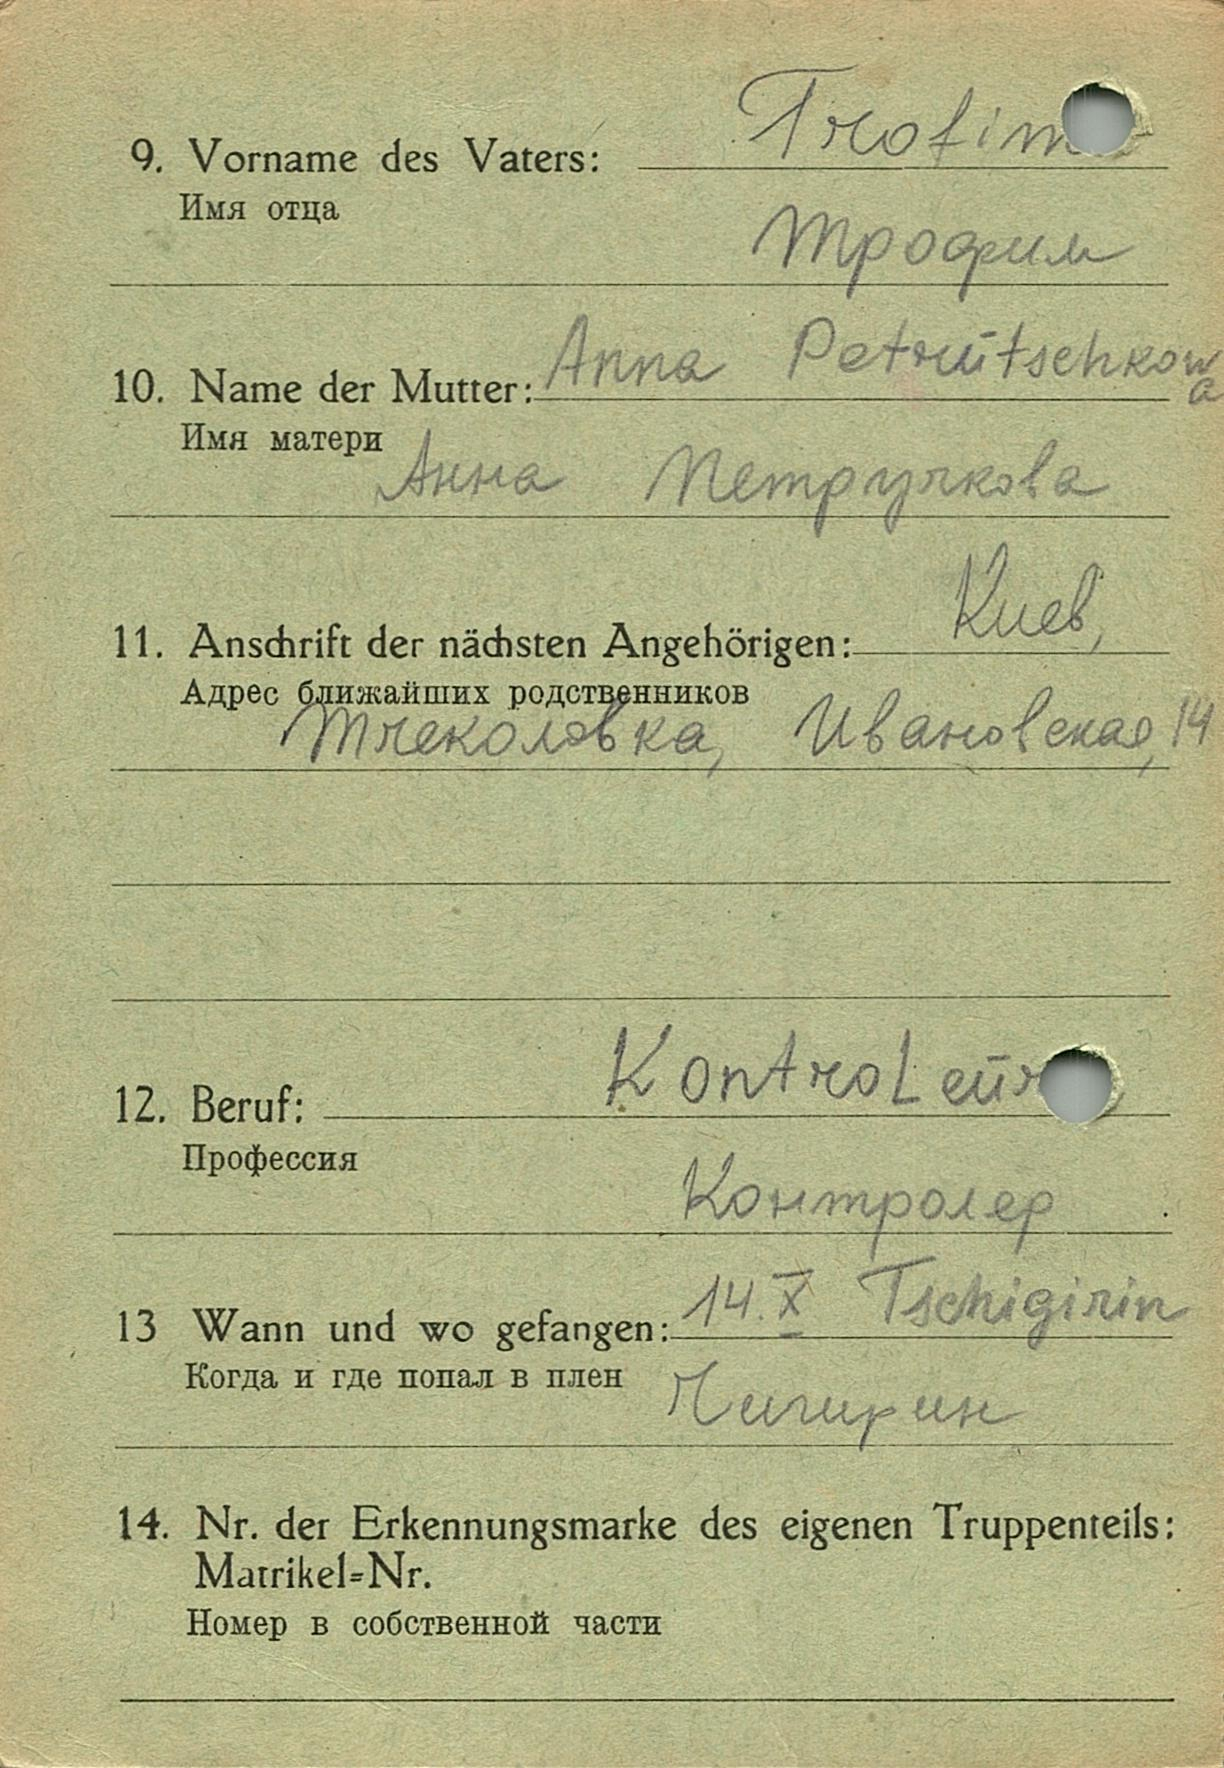 9. Vorname des Vaters: Trofim
Имя отца
Трофим
10. Name der Mutter: Anna Petrutschkowa
Имя матери
Анна Петручкова
11. Anschrift der nächsten Angehörigen: Киев,
Адрес ближайших родственников
Ивановская, 14
12. Beruf: KontroLeur
Профессия
Контролер
13 Wann und wo gefangen: 14.X Tschigirin
Когда и где попал в плен
Чигирин
14. Nr. der Erkennungsmarke des eigenen Truppenteils:
Matrikel=Nr.
Номер в собственной части